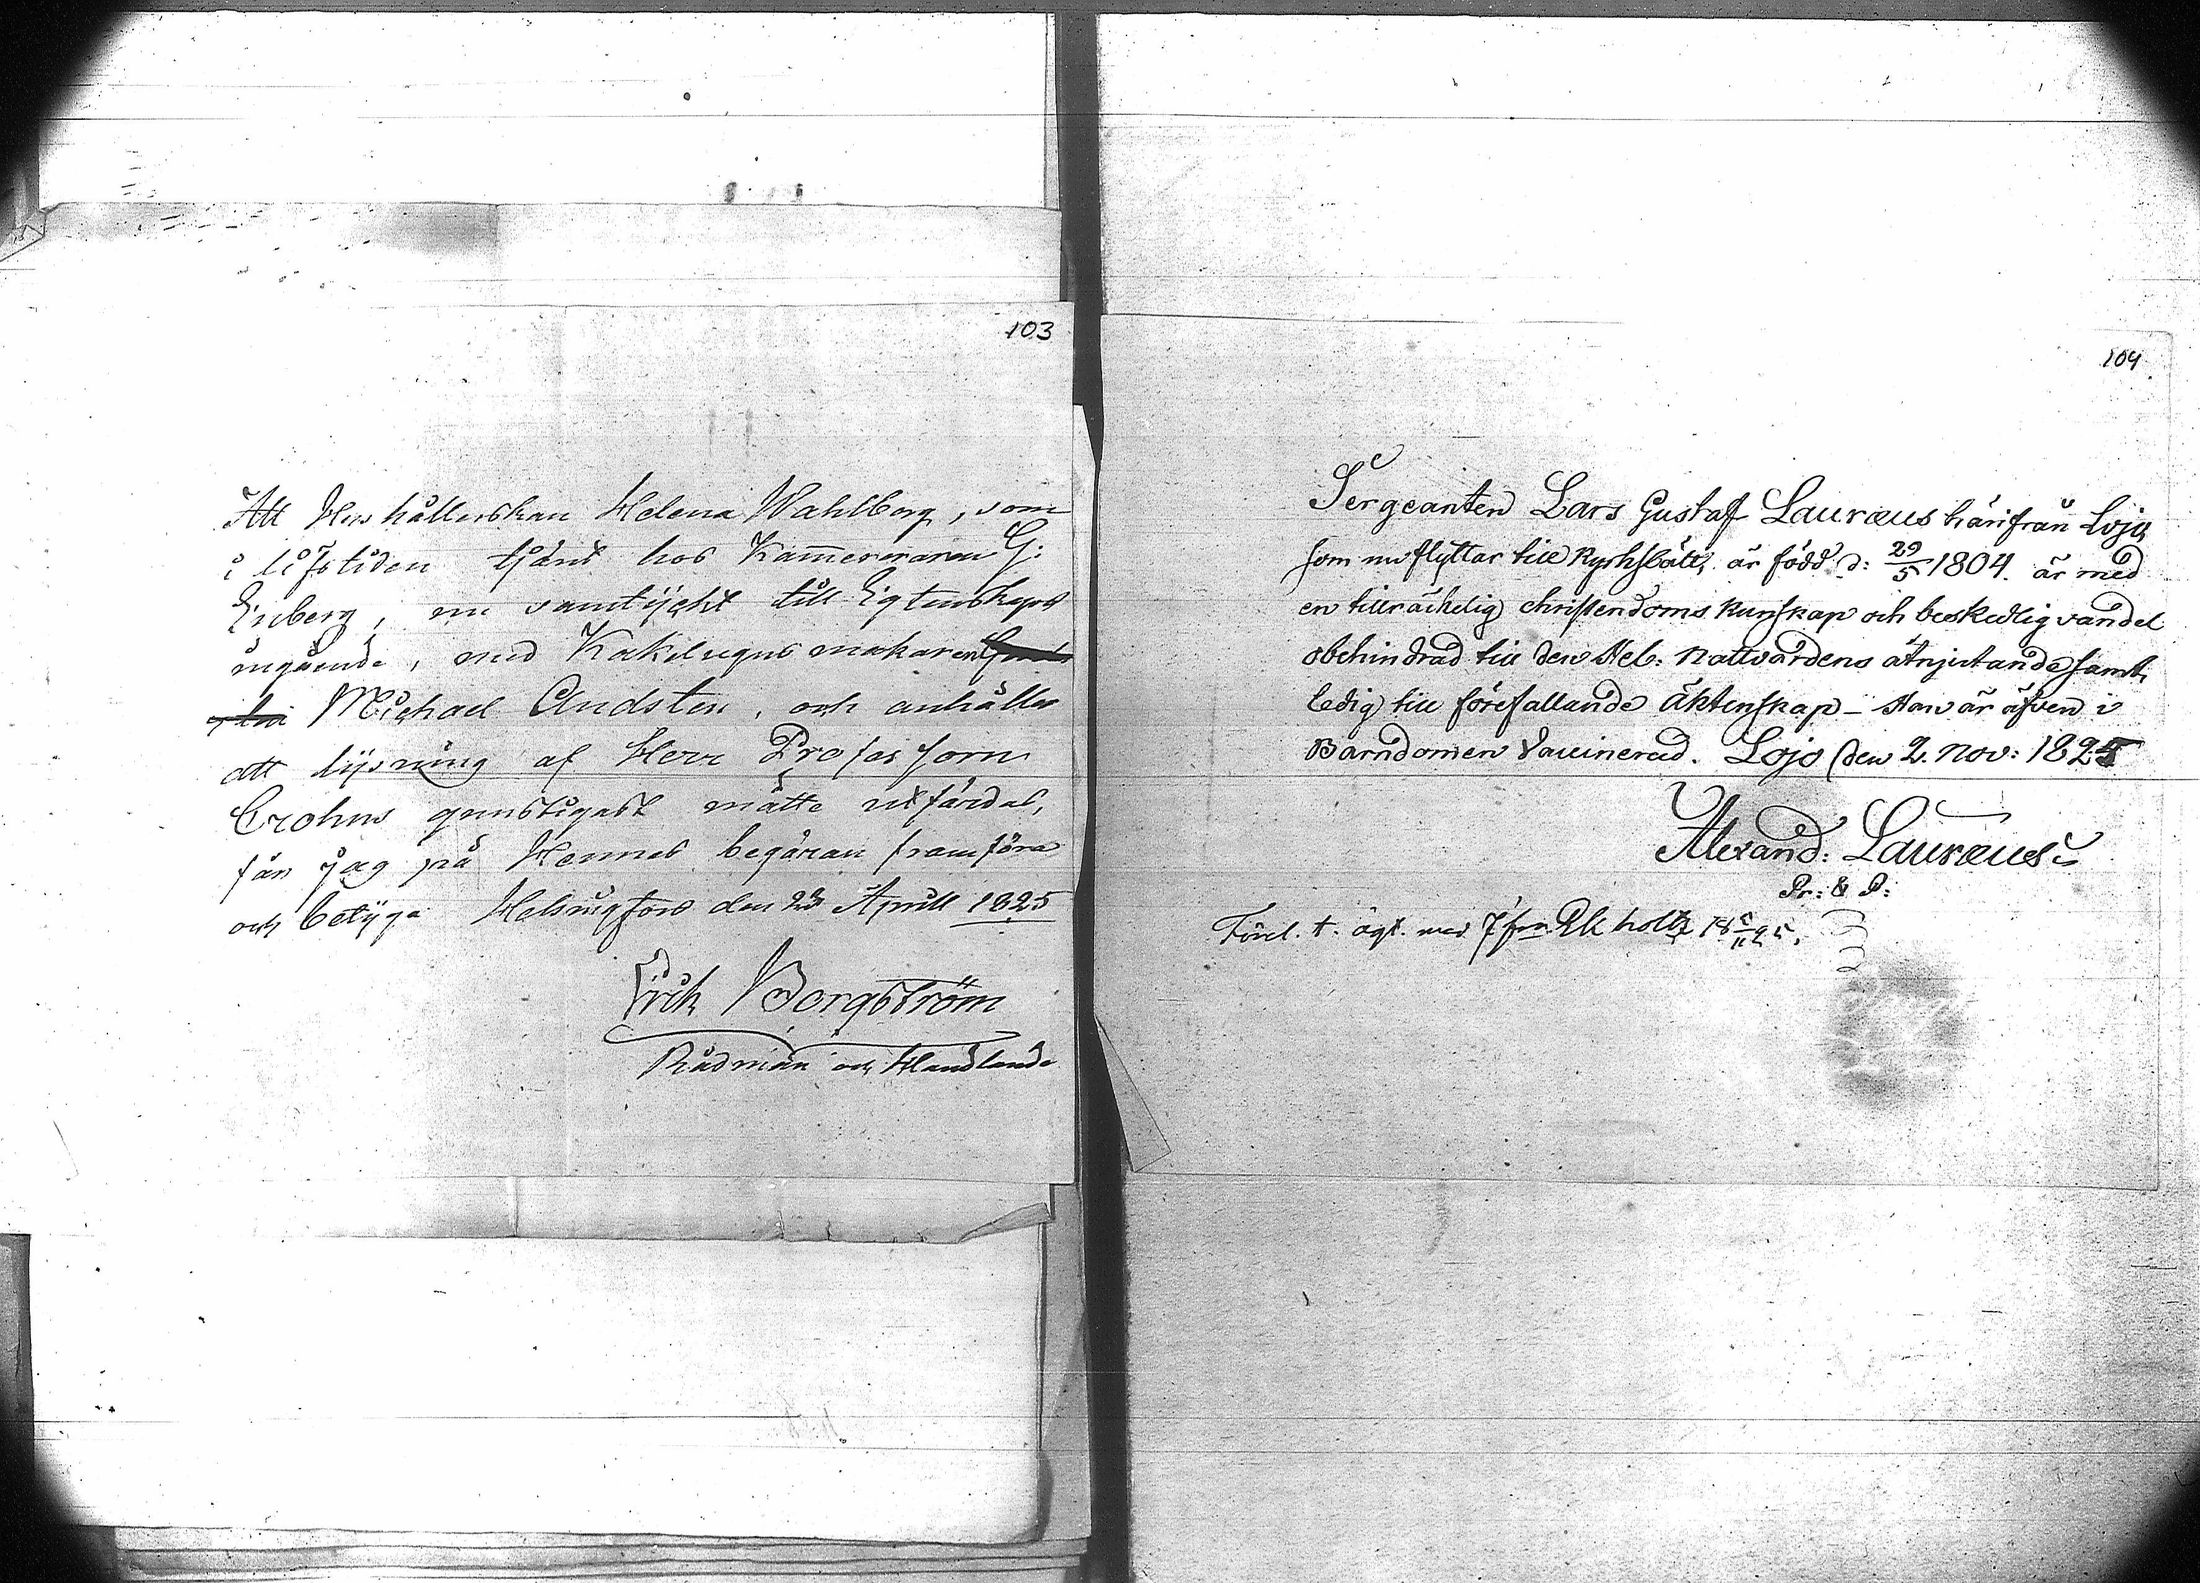 103
Att Hushållerskan Helena Wahlberg, som
i lifstiden tjänt hos Kammereraren G:
Enberg, nu samtÿckt till Egtenskaps
ingående, med Kakelugns makaren
Michael Andsten, och anhåller
att lÿsning af Herr Professorn
Crohns gunstigast måtte utfärdas,
får jag på Hennes begäran framföra
och betÿga Helsingfors den 23 Aprill 1825
Erik Bergström
Rådman och Handlande
104
Sergeanten Lars Gustaf Lauræus härifrån Lojo
som nu flyttar till Kyrkslätt, är född d: 29/5 1804. är med
en tillräckelig christendoms kunskap och beskedlig vandel
obehindrad till den Hel: Nattvardens åtnjutande samt
ledig till förefallande äktenskap – Han är äfven i
Barndomen Vaccinerad. Lojo den 2. Nov: 1825
Alexand: Lauræus
Pr: & P:
t. ägt. med Jfrn Ekholtz